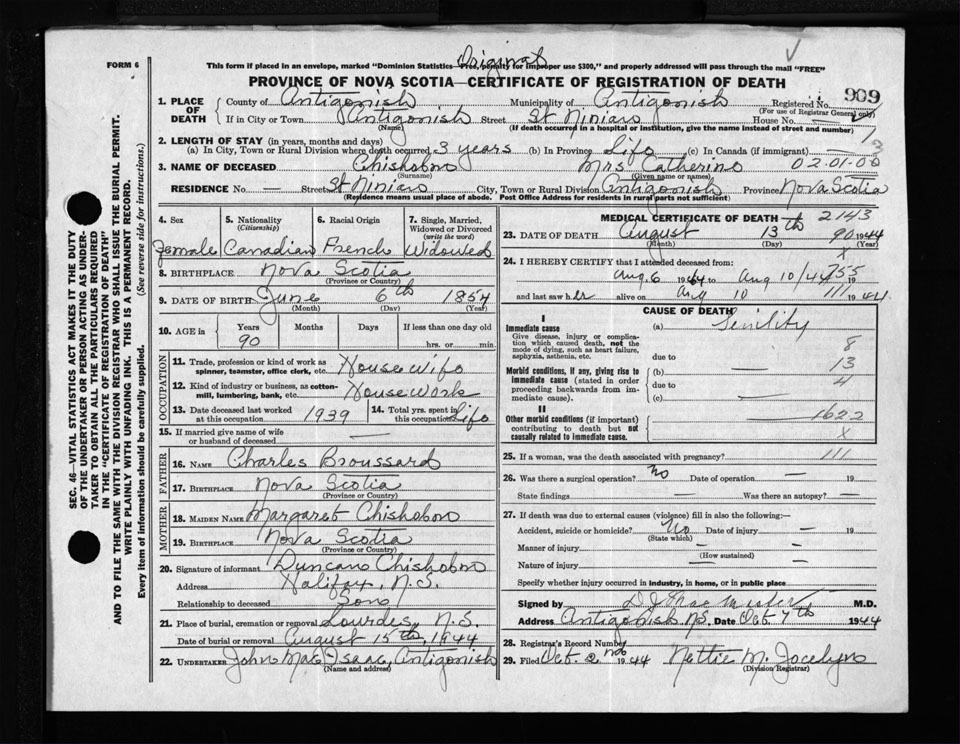 Original
FORM 6
This form if placed in an envelope, marked "Dominion Statistics—Free, penalty for improper use $300," and properly addressed will pass through the mail "FREE"
PROVINCE OF NOVA SCOTIA—CERTIFICATE OF REGISTRATION OF DEATH
909
1. PLACE OF DEATH { County of Antigonish Municipality of Antigonish Registered No.
(For use of Registrar General only)
If in City or Town Antigonish Street St Ninian House No. —
(Name) (If death occurred in a hospital or institution, give the name instead of street and number)
2. LENGTH OF STAY (in years, months and days)
(a) In City, Town or Rural Division where death occurred 3 years (b) In Province Life (c) In Canada (if immigrant) —
3. NAME OF DECEASED Chisholm Mrs Catherine 02-01-00
(Surname) (Given name or names)
RESIDENCE No. — Street St Ninian City, Town or Rural Division Antigonish Province Nova Scotia
(Residence means usual place of abode. Post Office Address for residents in rural parts not sufficient)
4. Sex 5. Nationality (Citizenship) 6. Racial Origin 7. Single, Married, Widowed or Divorced (write the word)
Female Canadian French Widowed
8. BIRTHPLACE Nova Scotia
(Province or Country)
9. DATE OF BIRTH June 6th 1854
(Month) (Day) (Year)
10. AGE in { Years Months Days If less than one day old
90 hrs. or min.
OCCUPATION
11. Trade, profession or kind of work as spinner, teamster, office clerk, etc. House wife
12. Kind of industry or business, as cotton-mill, lumbering, bank, etc. House Work
13. Date deceased last worked at this occupation 1939 14. Total yrs. spent in this occupation Life
15. If married give name of wife or husband of deceased —
FATHER
16. NAME Charles Broussard
17. BIRTHPLACE Nova Scotia
(Province or Country)
MOTHER
18. MAIDEN NAME Margaret Chisholm
19. BIRTHPLACE Nova Scotia
(Province or Country)
20. Signature of informant Duncan Chisholm
Address Halifax, N.S.
Relationship to deceased Son
21. Place of burial, cremation or removal Lourdes, N.S.
Date of burial or removal August 15th, 1944
22. UNDERTAKER John MacIsaac, Antigonish
(Name and address)
MEDICAL CERTIFICATE OF DEATH 2143
23. DATE OF DEATH August 13th 90 1944
(Month) (Day) (Year)
X
24. I HEREBY CERTIFY that I attended deceased from:
Aug. 6 1944 to Aug 10/44 155
and last saw her alive on Aug 10 111 1944
CAUSE OF DEATH
I
Immediate cause (a) Senility
Give disease, injury or complication which caused death, not the mode of dying, such as heart failure, asphyxia, asthenia, etc.
8
due to
13
Morbid conditions, if any, giving rise to immediate cause (stated in order proceeding backwards from immediate cause).
(b) —
due to 4
(c) —
II
Other morbid conditions (if important) contributing to death but not causally related to immediate cause.
1622
X
25. If a woman, was the death associated with pregnancy? 111
26. Was there a surgical operation? No Date of operation — 19
State findings — Was there an autopsy? —
27. If death was due to external causes (violence) fill in also the following:—
Accident, suicide or homicide? No Date of injury — 19
(State which)
Manner of injury —
(How sustained)
Nature of injury —
Specify whether injury occurred in industry, in home, or in public place
Signed by M.D.
Address Antigonish N.S. Date Oct. 7th 1944
28. Registrar's Record Number
29. Filed Oct. 2nd 1944 Nettie M. Jocelyn
(Division Registrar)
SEC. 46—VITAL STATISTICS ACT MAKES IT THE DUTY
OF THE UNDERTAKER OR PERSON ACTING AS UNDER-
TAKER TO OBTAIN ALL THE PARTICULARS REQUIRED
IN THE "CERTIFICATE OF REGISTRATION OF DEATH"
AND TO FILE THE SAME WITH THE DIVISION REGISTRAR WHO SHALL ISSUE THE BURIAL PERMIT.
WRITE PLAINLY WITH UNFADING INK. THIS IS A PERMANENT RECORD.
Every item of information should be carefully supplied. (See reverse side for instructions.)